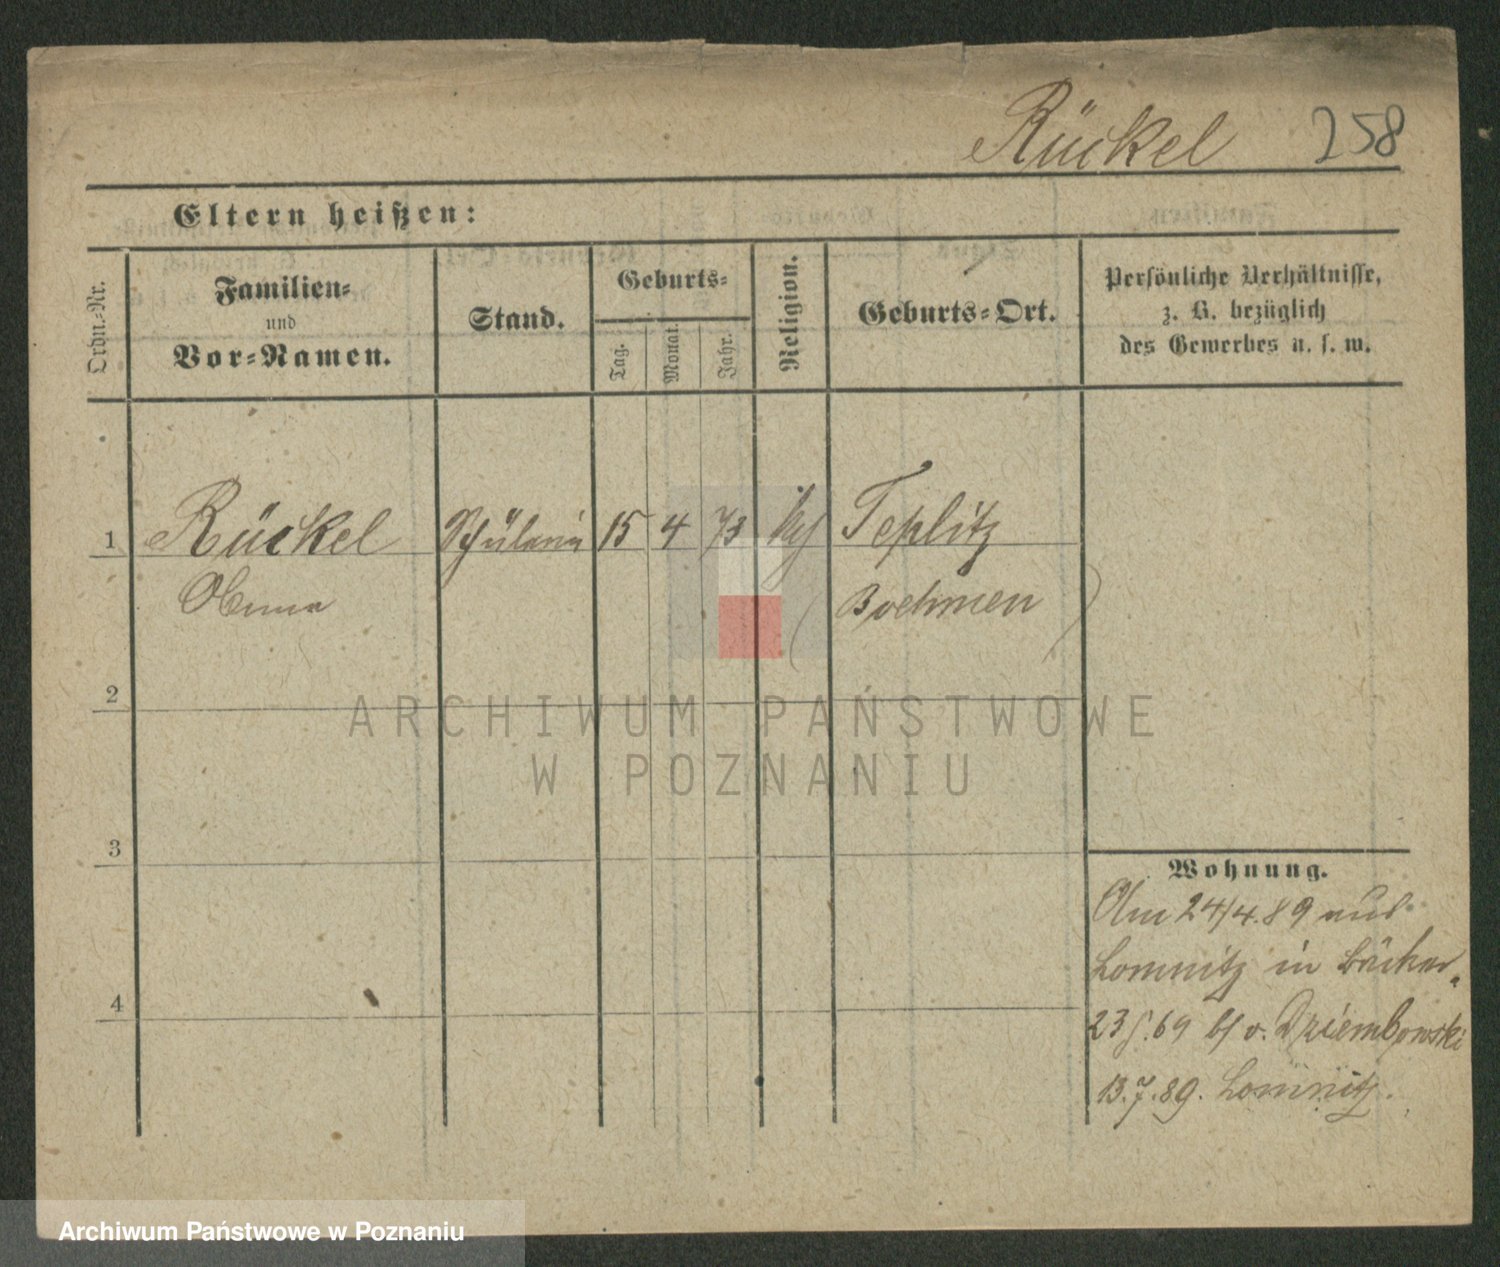 Rückel 258
Eltern heißen:
Ordn.-Nr.
Familien-
und
Vor-Namen.
Stand.
Geburts-
Tag.
Monat.
Jahr.
Religion.
Geburts-Ort.
Persönliche Verhältnisse,
z. B. bezüglich
des Gewerbes u. s. w.
1 Rückel Schülerin 15 4 73 Teplitz
Anna (Boehmen)
2
3
4
Wohnung.
Am 24/4.89 aus
Lomnitz in Bäcker-
v. Dziembowski
13.7.89. Lomnitz.
ARCHIWUM PAŃSTWOWE
W POZNANIU
Archiwum Państwowe w Poznaniu